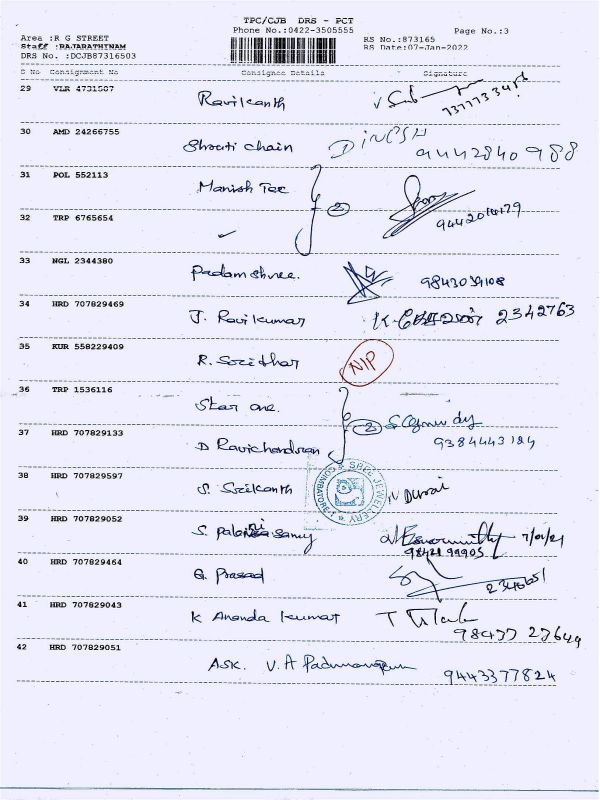 TPC/CJB DRS - PCT
Phone No.:0422-3505555
Page No.:3
Area :R G STREET
Staff :RAJARATHINAM
DRS No. :DCJB87316503
RS No.:873165
RS Date:07-Jan-2022
S No Consignment No Consignee Details Signature
29 VLR 4731587 Ravikanth
30 AMD 24266755 Shruti Chain DINESH
9442840988
31 POL 552113 Manish Tex
2
32 TRP 6765654 ✓
33 NGL 2344380 Padam Shree. 9843039108
34 HRD 707829469 J. Ravi Kumar 2342763
35 KUR 558229409 R. Sridhar NIP
36 TRP 1536116 Star one.
2
37 HRD 707829133 D Ravichandran 9384443184
SREE JEWELLERY COIMBATORE-1
38 HRD 707829597 S. Srikanth Durai
39 HRD 707829052 S. Palanisamy
40 HRD 707829464 G. Prasad
41 HRD 707829043 K Ananda Kumar
42 HRD 707829051 ASK. V. A
9443377824